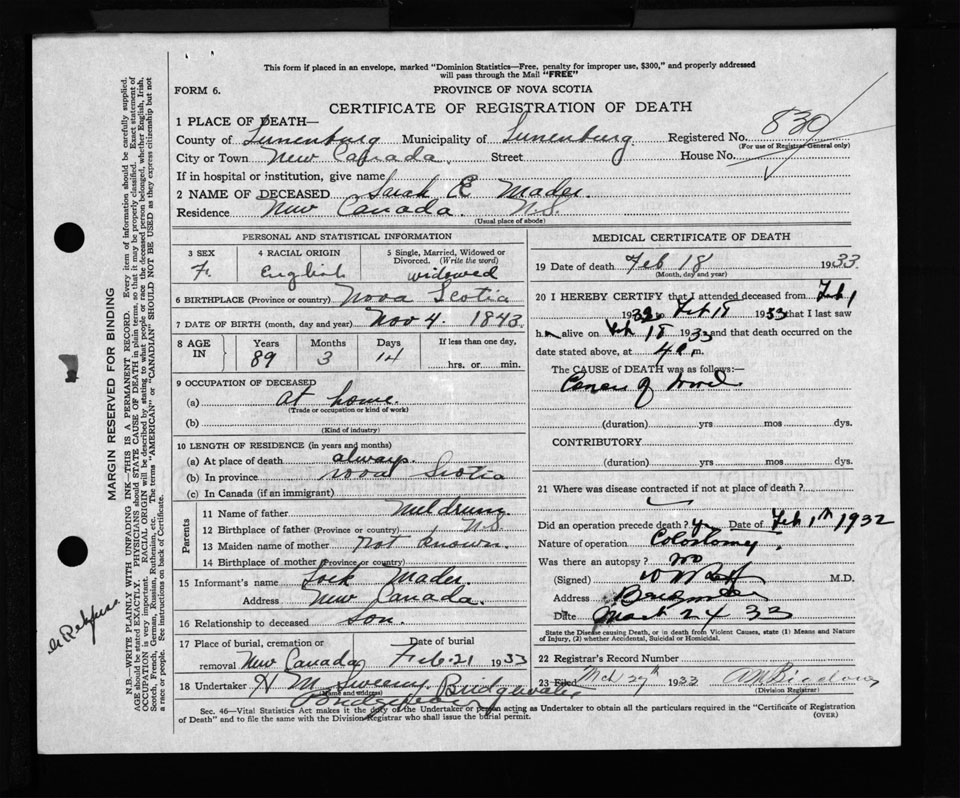 This form if placed in an envelope, marked "Dominion Statistics—Free, penalty for improper use, $300," and properly addressed
will pass through the Mail "FREE"
FORM 6.
PROVINCE OF NOVA SCOTIA
CERTIFICATE OF REGISTRATION OF DEATH
1 PLACE OF DEATH—
County of Lunenburg Municipality of Lunenburg Registered No. 830
(For use of Registrar General only)
City or Town New Canada Street House No.
If in hospital or institution, give name
2 NAME OF DECEASED Sarah E Mader
Residence New Canada N.S.
(Usual place of abode)
PERSONAL AND STATISTICAL INFORMATION
3 SEX
F.
4 RACIAL ORIGIN
English
5 Single, Married, Widowed or
Divorced. (Write the word)
widowed
6 BIRTHPLACE (Province or country) Nova Scotia
7 DATE OF BIRTH (month, day and year) Nov 4. 1843.
8 AGE IN
Years 89
Months 3
Days 14
If less than one day,
hrs. or min.
9 OCCUPATION OF DECEASED
(a) At home.
(Trade or occupation or kind of work)
(b)
(Kind of industry)
10 LENGTH OF RESIDENCE (in years and months)
(a) At place of death always.
(b) In province Nova Scotia
(c) In Canada (if an immigrant)
Parents
11 Name of father Muldrum
12 Birthplace of father (Province or country) N.S.
13 Maiden name of mother Not known.
14 Birthplace of mother (Province or country)
15 Informant's name Lock Mader
Address New Canada.
16 Relationship to deceased Son.
17 Place of burial, cremation or
removal New Canada
Date of burial
Feb. 21 1933
18 Undertaker H M Sweeny. Bridgewater
(Name and address)
MEDICAL CERTIFICATE OF DEATH
19 Date of death Feb 18 1933.
(Month, day and year)
20 I HEREBY CERTIFY that I attended deceased from Feb 1
1932 to Feb 18 1933 that I last saw
her alive on Feb 18 1933 and that death occurred on the
date stated above, at 4 a.m.
The CAUSE OF DEATH was as follows:—
Cancer of bowel
(duration) yrs mos dys.
CONTRIBUTORY
(duration) yrs mos dys.
21 Where was disease contracted if not at place of death?
Did an operation precede death? Yes Date of Feb 1th 1932
Nature of operation Colostomy
Was there an autopsy? no
(Signed) M.D.
Address Bridgewater
Date Mar 24 33
State the Disease causing Death, or in death from Violent Causes, state (1) Means and Nature
of Injury, (2) whether Accidental, Suicidal or Homicidal.
22 Registrar's Record Number
23 Filed Mch 27th 1933
(Division Registrar)
Sec. 46—Vital Statistics Act makes it the duty of the Undertaker or person acting as Undertaker to obtain all the particulars required in the "Certificate of Registration
of Death" and to file the same with the Division Registrar who shall issue the burial permit.
(OVER)
MARGIN RESERVED FOR BINDING
N.B.—WRITE PLAINLY WITH UNFADING INK—THIS IS A PERMANENT RECORD. Every item of information should be carefully supplied.
AGE should be stated EXACTLY. PHYSICIANS should STATE CAUSE OF DEATH in plain terms, so that it may be properly classified. Exact statement of
OCCUPATION is very important. RACIAL ORIGIN will be described by stating to what people or race the deceased person belonged, whether English, Irish,
Scotch, French, German, Russian, Ruthenian, etc. The terms "AMERICAN" or "CANADIAN" SHOULD NOT BE USED as they express citizenship but not
a race or people. See instructions on back of Certificate.